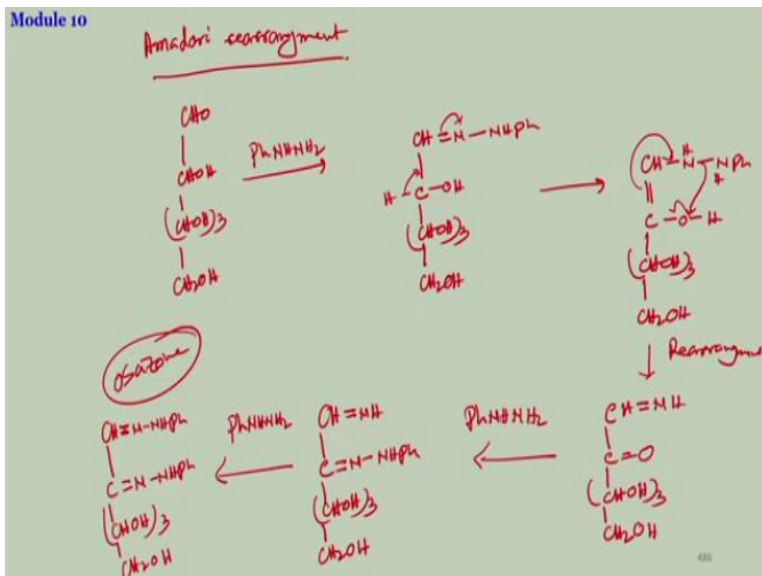 Module 10
Amadori rearrangment
CHO
CHOH
(CHOH)3
CH2OH
PhNHNH2
CH=N-NHPh
H-C-OH
(CHOH)3
CH2OH
CH-N-NPh
H
H
C-O-H
(CHOH)3
CH2OH
Rearrangment
CH=NH
C=O
(CHOH)3
CH2OH
PhNHNH2
CH=NH
C=N-NHPh
(CHOH)3
CH2OH
PhNHNH2
osazone
CH=N-NHPh
C=N-NHPh
(CHOH)3
CH2OH
486